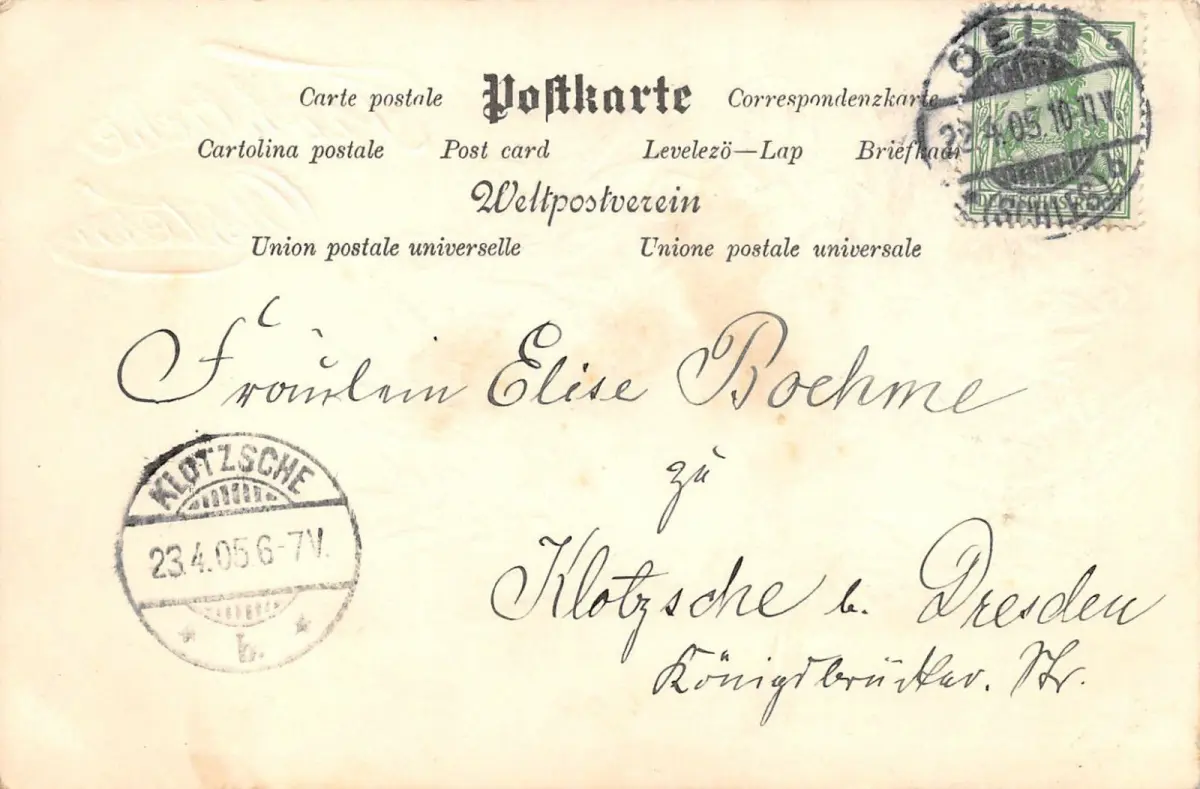 Carte postale Postkarte Correspondenzkarte
Cartolina postale Post card Levelezö—Lap Briefkaar
Weltpostverein
Union postale universelle Unione postale universale
OELS
4.05. 10-11V.
(SCHLES)
5
DEUTSCHES REICH
Fräulein Elise Boehme
zu
Klotzsche b. Dresden
Königsbrücker. Str.
KLOTZSCHE
23.4.05.6-7V.
b.